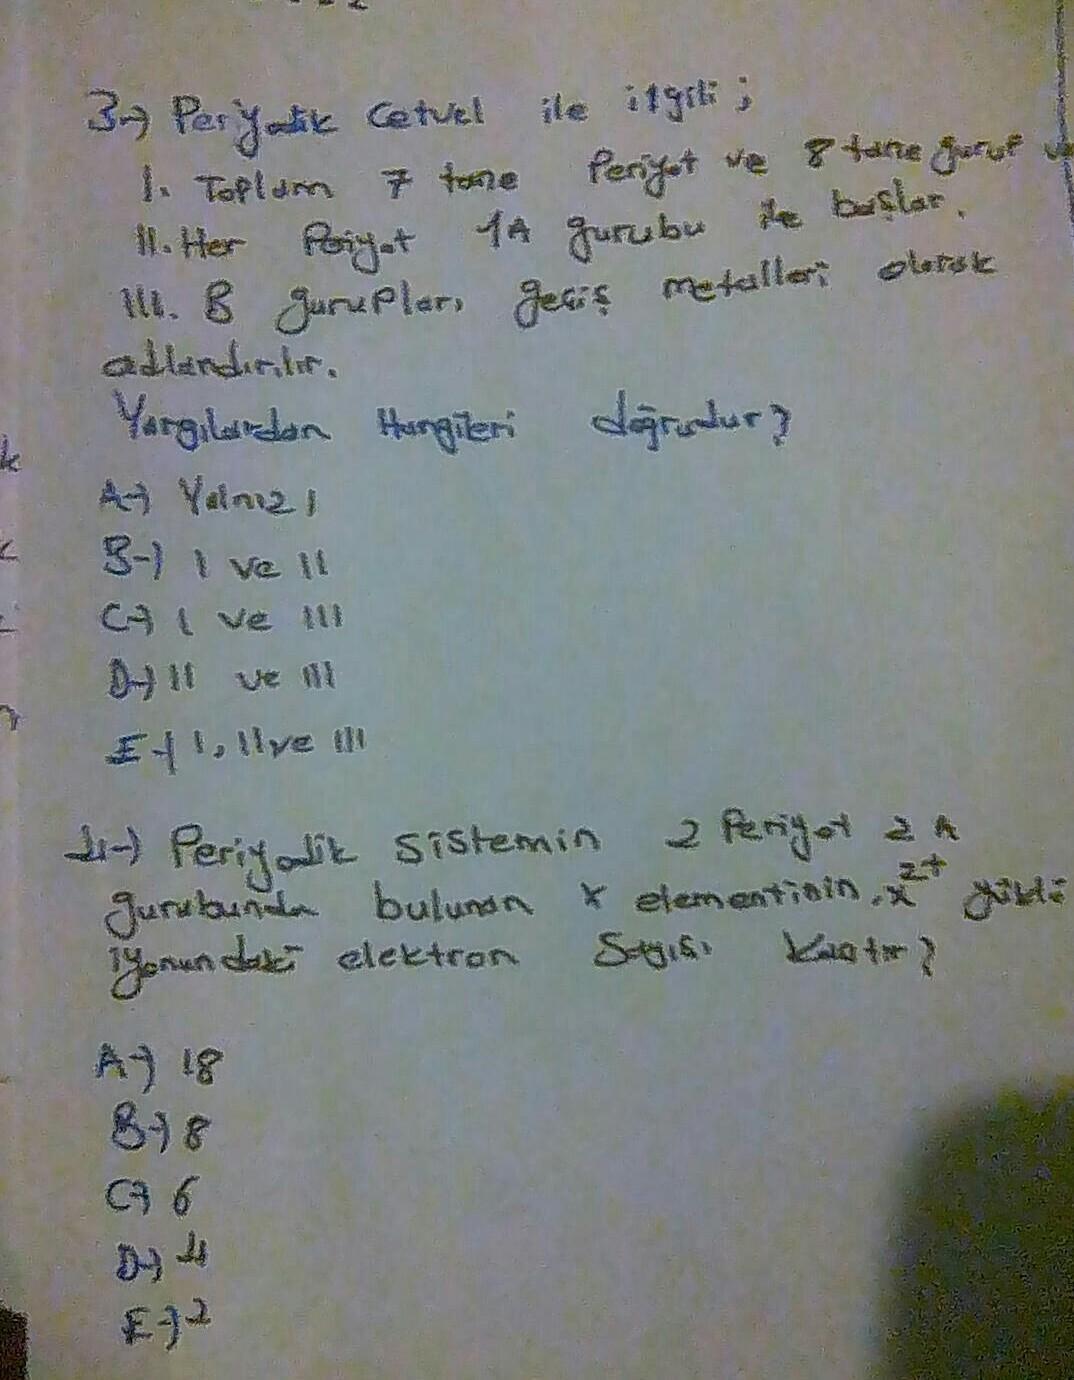 3-) Periyodik Cetvel ile ilgili ;
I. Toplam 7 tane Periyot ve 8 tane gurup
II. Her Periyot 1A gurubu ile başlar.
III. B gurupları geçiş metalleri olarak
adlandırılır.
Yargılardan Hangileri doğrudur?
A-) Yalnız I
B-) I ve II
C-) I ve III
D-) II ve III
E-) I, II ve III
4-) Periyodik sistemin 2 Periyot 2 A
gurubunda bulunan x elementinin, x²⁺ yüklü
iyonundaki elektron Sayısı Kaçtır?
A-) 18
B-) 8
C-) 6
D-) 4
E-) 2